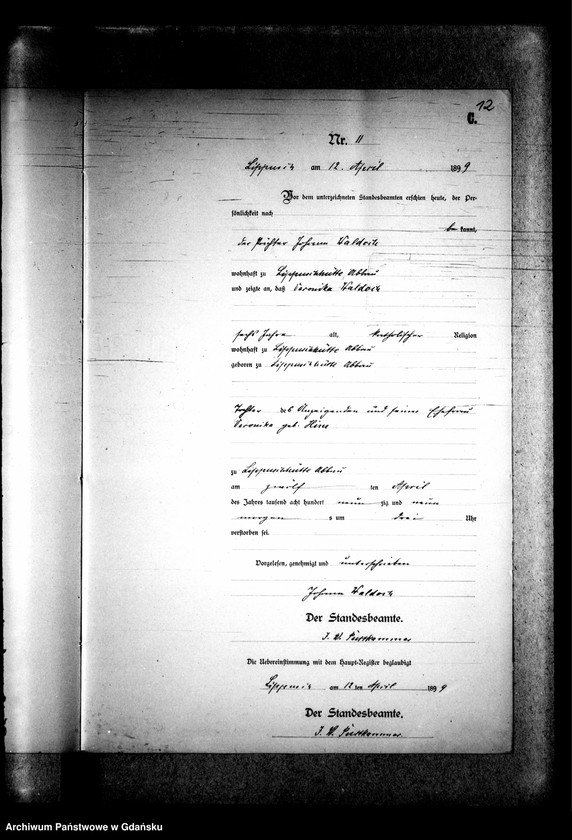 12
C.
Nr. 11
am 12. April 1899
Vor dem unterzeichneten Standesbeamten erschien heute, der Per-
sönlichkeit nach
be kannt,
der Johann
wohnhaft zu Abbau
und zeigte an, daß Veronika
sechs Jahre alt, katholischer Religion
wohnhaft zu Abbau
geboren zu Abbau
Tochter des Anzeigenden und seiner Ehefrau
Veronika geb.
zu Abbau
am zwölf ten April
des Jahres tausend acht hundert neun zig und neun
morgen s um drei Uhr
verstorben sei.
Vorgelesen, genehmigt und unterschrieben
Johann
Der Standesbeamte.
Puttkammer
Die Uebereinstimmung mit dem Haupt-Register beglaubigt
am 12ten April 1899
Der Standesbeamte.
Puttkammer
Archiwum Państwowe w Gdańsku